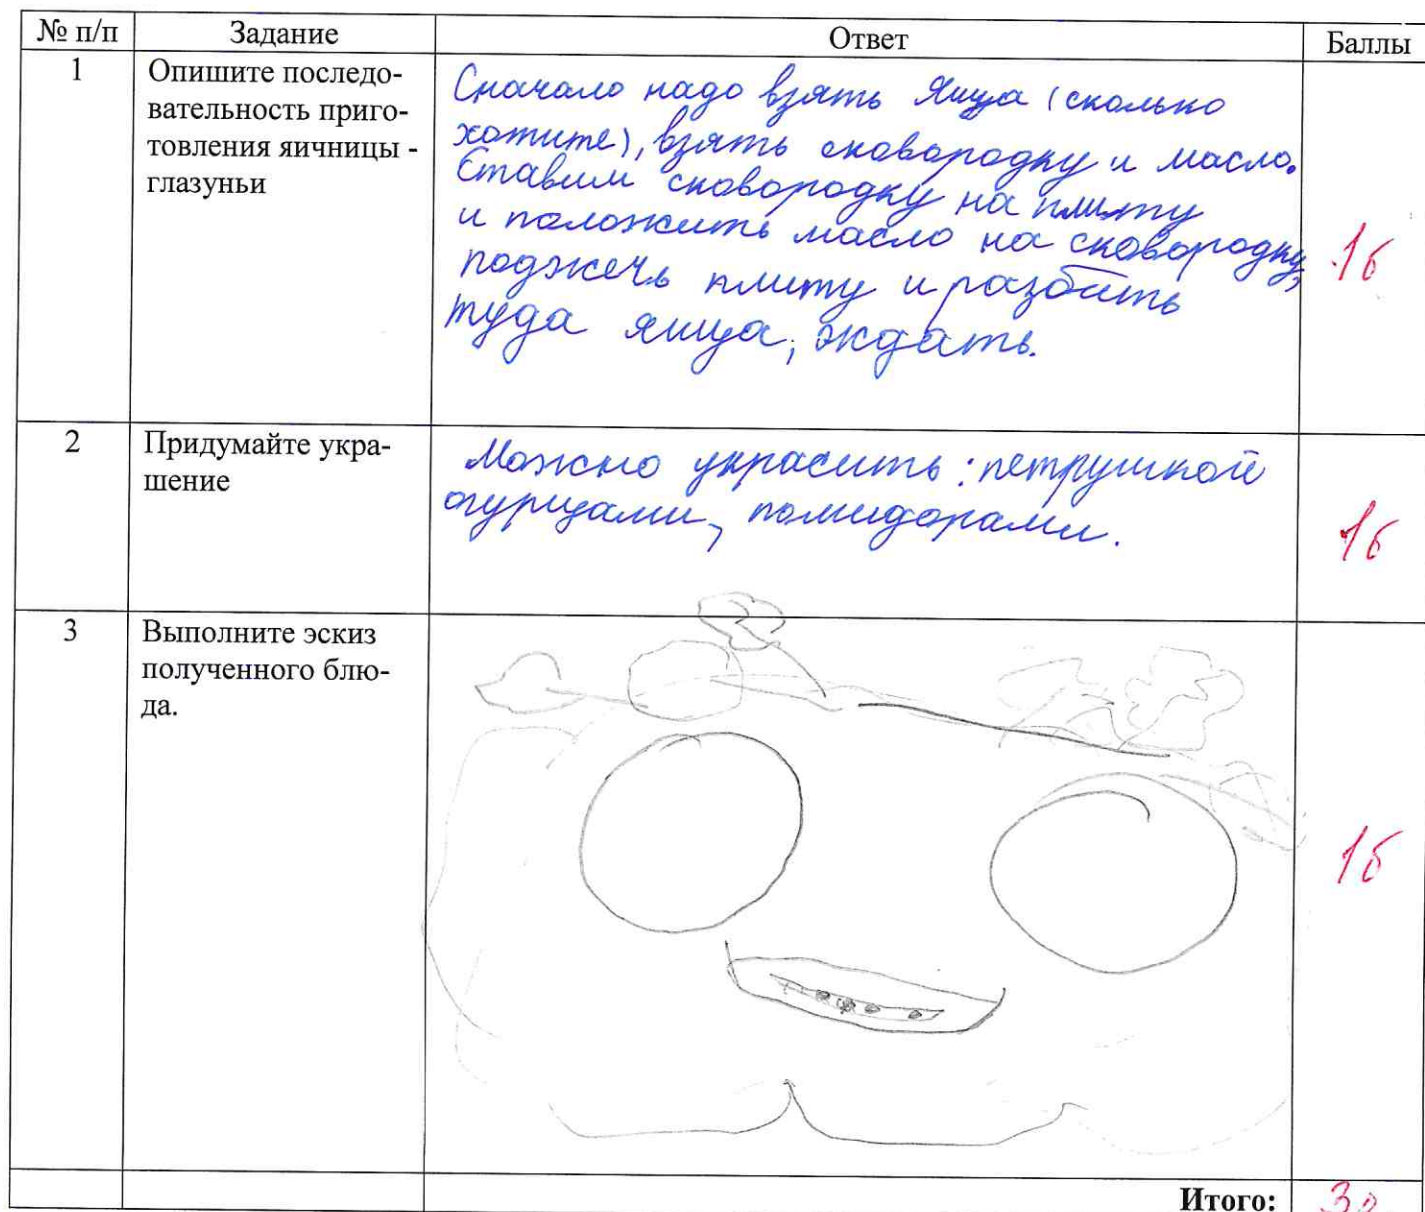 № п/п Задание Ответ Баллы
1 Опишите последо-
вательность приго-
товления яичницы -
глазуньи
Сначало надо взять Яица (сколько
хотите), взять сковородку и масло.
Ставим сковородку на плиту
и положить масло на сковородку,
поджечь плиту и разбить
туда яица, ждать.
1б
2 Придумайте укра-
шение
Можно украсить: петрушкой
огурцами, помидорами.
1б
3 Выполните эскиз
полученного блю-
да.
1б
Итого: 3